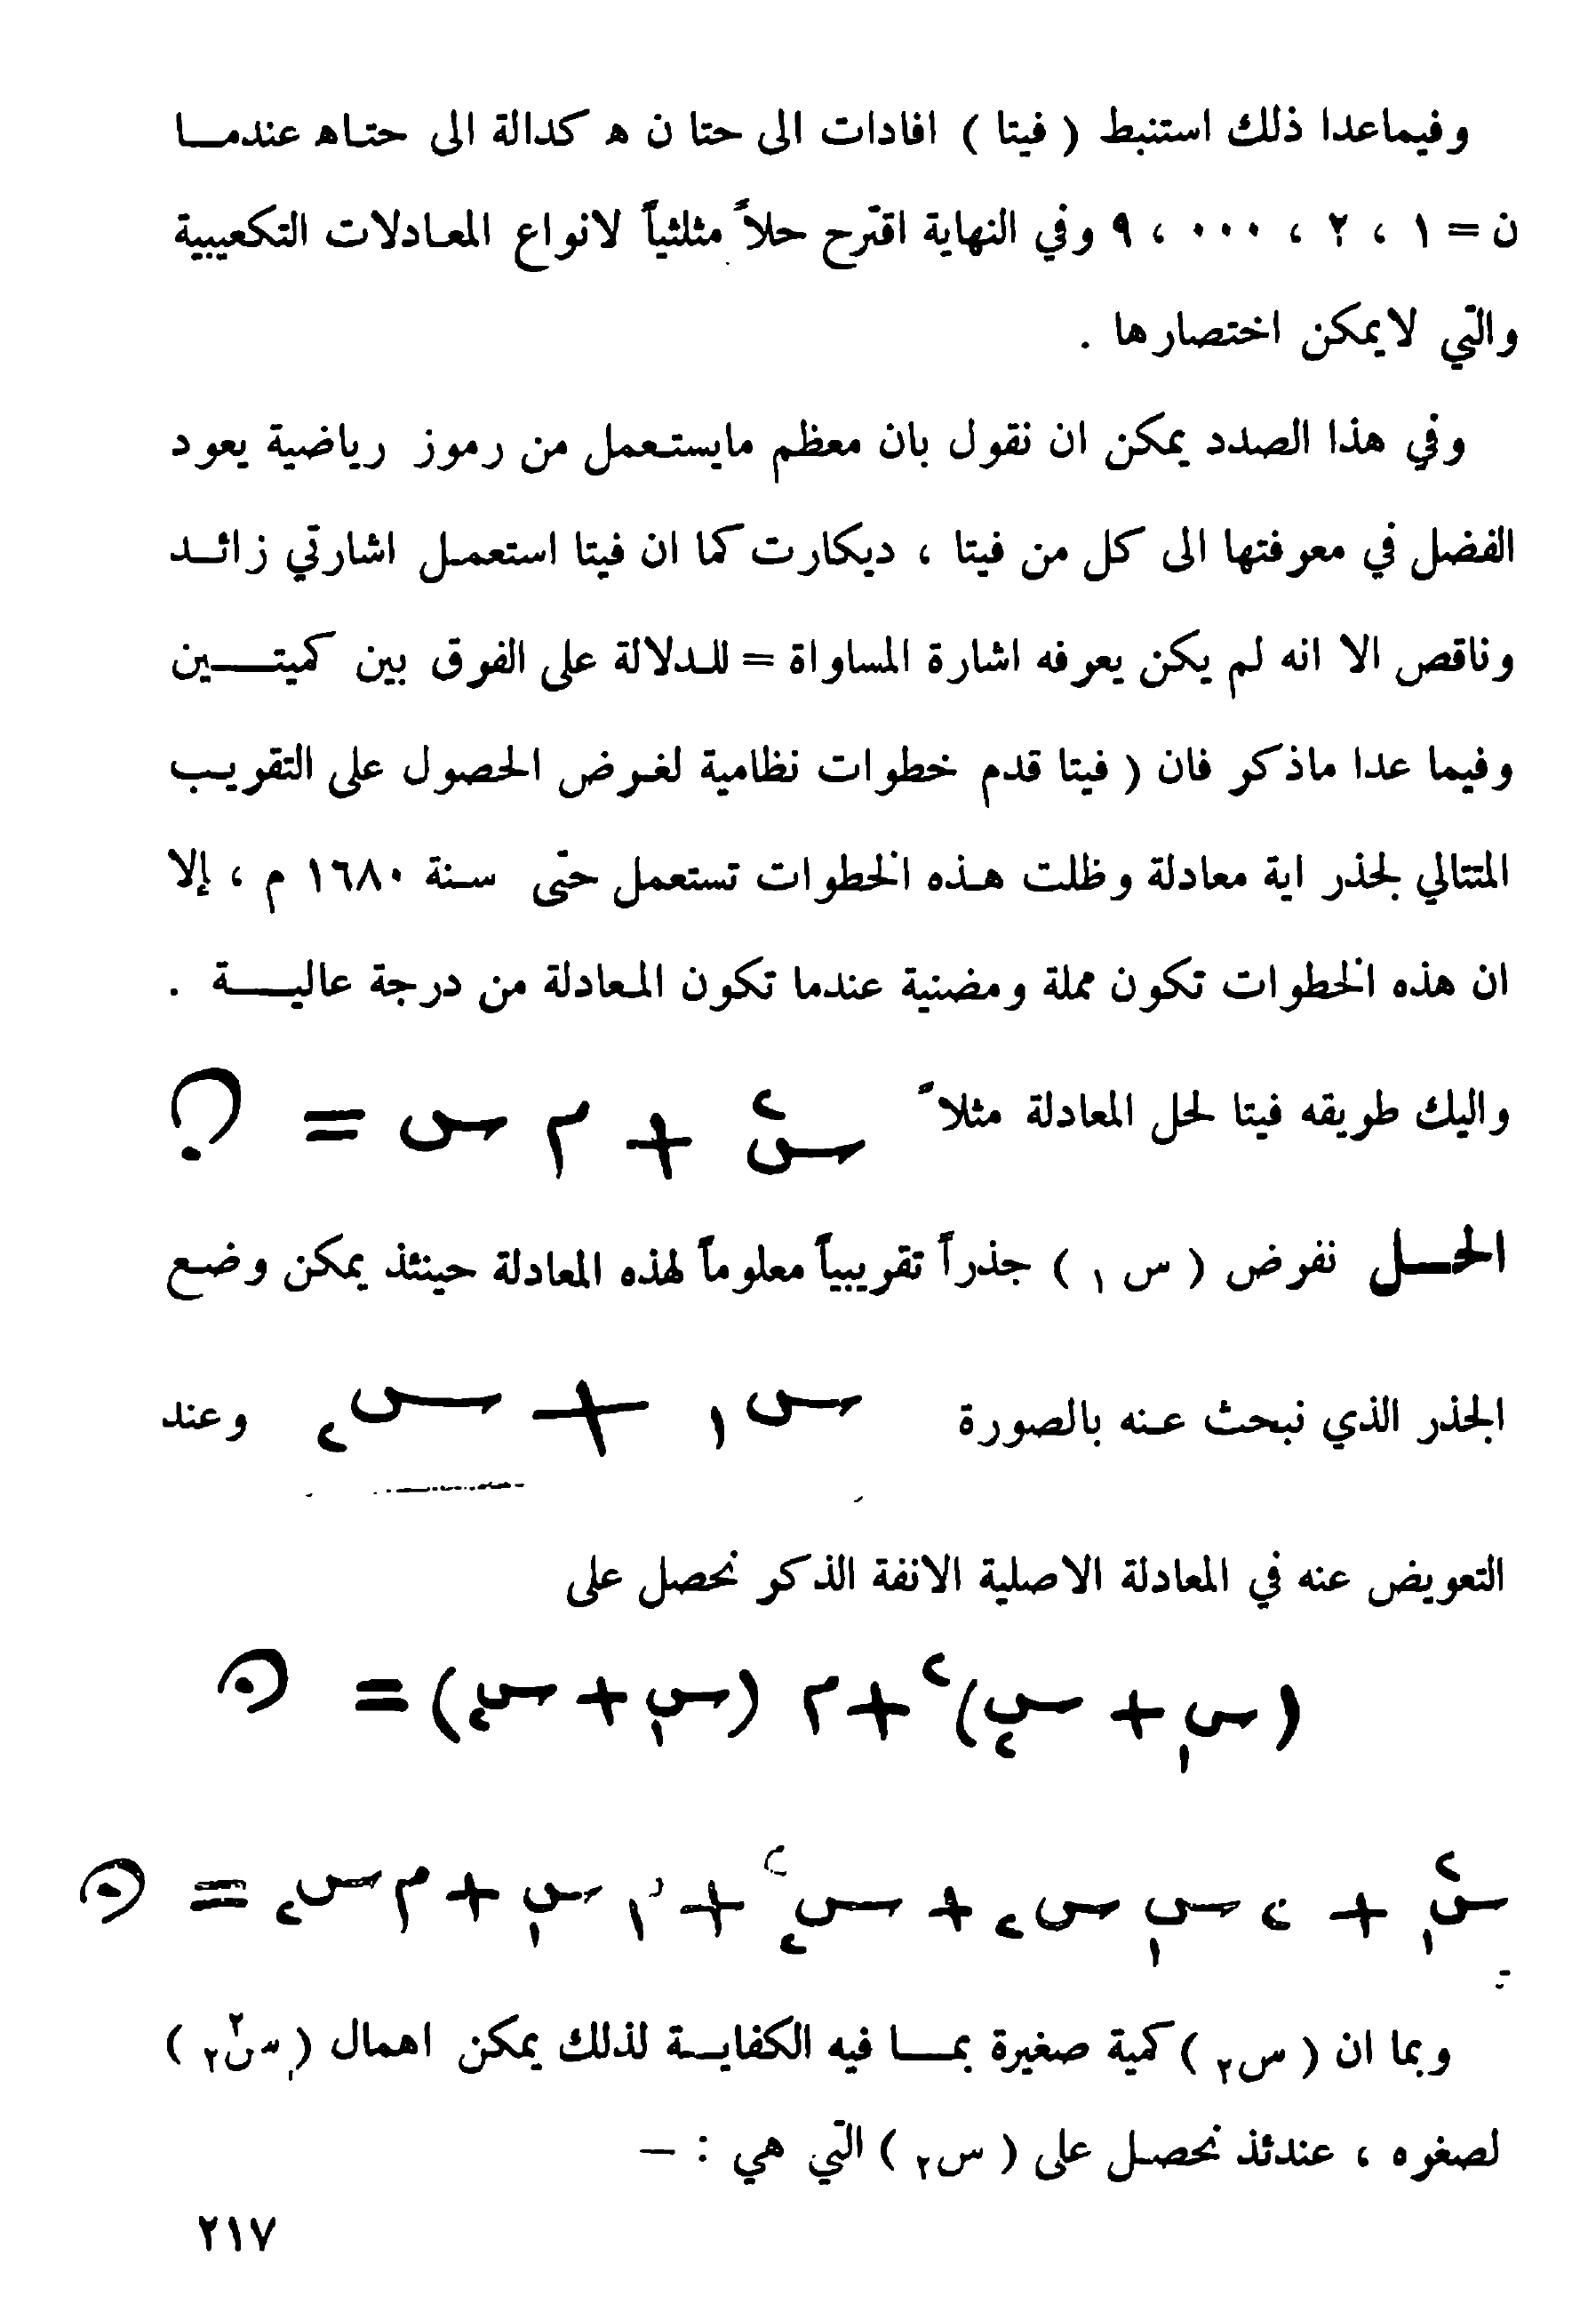 وفيماعدا ذلك استنبط ( فيتا ) افادات الى حتا ن ه كدالة الى حتاه عندما
ن = ١ ، ٢ ، ٠٠٠ ، ٩ وفي النهاية اقترح حلاً مثلثياً لانواع المعادلات التكعيبية
والتي لايمكن اختصارها .
وفي هذا الصدد يمكن ان نقول بان معظم مايستعمل من رموز رياضية يعود
الفضل في معرفتها الى كل من فيتا ، ديكارت كما ان فيتا استعمل اشارتي زائد
وناقص الا انه لم يكن يعرفه اشارة المساواة = للدلالة على الفوق بين كميتين
وفيما عدا ماذكر فان ( فيتا قدم خطوات نظامية لغرض الحصول على التقريب
المتتالي لجذر اية معادلة وظلت هذه الخطوات تستعمل حتى سنة ١٦٨٠ م ، إلا
ان هذه الخطوات تكون مملة ومضنية عندما تكون المعادلة من درجة عالية .
واليك طريقه فيتا لحل المعادلة مثلاً س٢ + م س = ن
الحل نفرض ( س ١ ) جذراً تقريبياً معلوماً لهذه المعادلة حينئذ يمكن وضع
الجذر الذي نبحث عنه بالصورة س١ + س٢ وعند
التعويض عنه في المعادلة الاصلية الانفة الذكر نحصل على
( س١ + س٢ )٢ + م ( س١ + س٢ ) = ن
س١٢ + ٢ س١ س٢ + س٢٢ + م س١ + م س٢ = ن
وبما ان ( س٢ ) كمية صغيرة بما فيه الكفاية لذلك يمكن اهمال ( س٢٢ )
لصغره ، عندئذ نحصل على ( س٢ ) التي هي : –
٢١٧